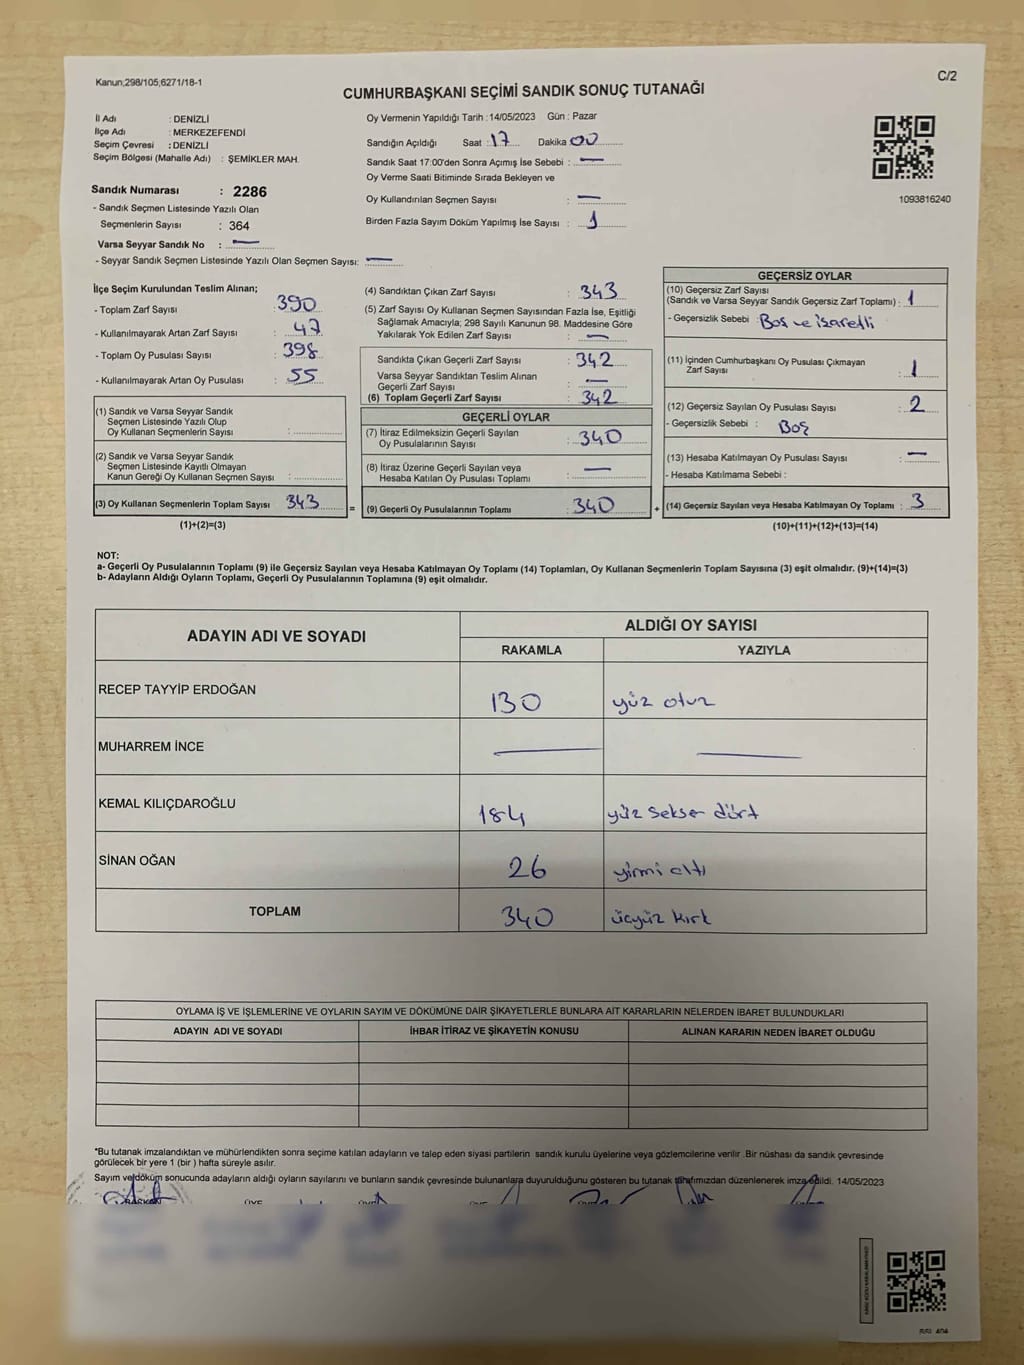 Kanun;298/105;6271/18-1
C/2
CUMHURBAŞKANI SEÇİMİ SANDIK SONUÇ TUTANAĞI
İl Adı : DENİZLİ
İlçe Adı : MERKEZEFENDİ
Seçim Çevresi : DENİZLİ
Seçim Bölgesi (Mahalle Adı) : ŞEMİKLER MAH.
Sandık Numarası : 2286
- Sandık Seçmen Listesinde Yazılı Olan
Seçmenlerin Sayısı : 364
Varsa Seyyar Sandık No : —
- Seyyar Sandık Seçmen Listesinde Yazılı Olan Seçmen Sayısı: —
Oy Vermenin Yapıldığı Tarih :14/05/2023 Gün : Pazar
Sandığın Açıldığı Saat : 17 Dakika 00
Sandık Saat 17:00'den Sonra Açımış İse Sebebi : —
Oy Verme Saati Bitiminde Sırada Bekleyen ve
Oy Kullandırılan Seçmen Sayısı : —
Birden Fazla Sayım Döküm Yapılmış İse Sayısı : 1
1093816240
İlçe Seçim Kurulundan Teslim Alınan;
- Toplam Zarf Sayısı : 390
- Kullanılmayarak Artan Zarf Sayısı : 47
- Toplam Oy Pusulası Sayısı : 398
- Kullanılmayarak Artan Oy Pusulası : 55
(1) Sandık ve Varsa Seyyar Sandık
Seçmen Listesinde Yazılı Olup
Oy Kullanan Seçmenlerin Sayısı :
(2) Sandık ve Varsa Seyyar Sandık
Seçmen Listesinde Kayıtlı Olmayan
Kanun Gereği Oy Kullanan Seçmen Sayısı :
(3) Oy Kullanan Seçmenlerin Toplam Sayısı 343
(1)+(2)=(3)
(4) Sandıktan Çıkan Zarf Sayısı : 343
(5) Zarf Sayısı Oy Kullanan Seçmen Sayısından Fazla İse, Eşitliği
Sağlamak Amacıyla; 298 Sayılı Kanunun 98. Maddesine Göre
Yakılarak Yok Edilen Zarf Sayısı : —
Sandıkta Çıkan Geçerli Zarf Sayısı : 342
Varsa Seyyar Sandıktan Teslim Alınan
Geçerli Zarf Sayısı : —
(6) Toplam Geçerli Zarf Sayısı : 342
GEÇERLİ OYLAR
(7) İtiraz Edilmeksizin Geçerli Sayılan
Oy Pusulalarının Sayısı : 340
(8) İtiraz Üzerine Geçerli Sayılan veya
Hesaba Katılan Oy Pusulası Toplamı : —
= (9) Geçerli Oy Pusulalarının Toplamı : 340 +
GEÇERSİZ OYLAR
(10) Geçersiz Zarf Sayısı
(Sandık ve Varsa Seyyar Sandık Geçersiz Zarf Toplamı) : 1
- Geçersizlik Sebebi : Boş ve işaretli
(11) İçinden Cumhurbaşkanı Oy Pusulası Çıkmayan
Zarf Sayısı : 1
(12) Geçersiz Sayılan Oy Pusulası Sayısı : 2
- Geçersizlik Sebebi : Boş
(13) Hesaba Katılmayan Oy Pusulası Sayısı : —
- Hesaba Katılmama Sebebi :
(14) Geçersiz Sayılan veya Hesaba Katılmayan Oy Toplamı : 3
(10)+(11)+(12)+(13)=(14)
NOT:
a- Geçerli Oy Pusulalarının Toplamı (9) ile Geçersiz Sayılan veya Hesaba Katılmayan Oy Toplamı (14) Toplamları, Oy Kullanan Seçmenlerin Toplam Sayısına (3) eşit olmalıdır. (9)+(14)=(3)
b- Adayların Aldığı Oyların Toplamı, Geçerli Oy Pusulalarının Toplamına (9) eşit olmalıdır.
ADAYIN ADI VE SOYADI ALDIĞI OY SAYISI
RAKAMLA YAZIYLA
RECEP TAYYİP ERDOĞAN 130 yüz otuz
MUHARREM İNCE — —
KEMAL KILIÇDAROĞLU 184 yüz seksen dört
SİNAN OĞAN 26 yirmi altı
TOPLAM 340 üçyüz kırk
OYLAMA İŞ VE İŞLEMLERİNE VE OYLARIN SAYIM VE DÖKÜMÜNE DAİR ŞİKAYETLERLE BUNLARA AİT KARARLARIN NELERDEN İBARET BULUNDUKLARI
ADAYIN ADI VE SOYADI İHBAR İTİRAZ VE ŞİKAYETİN KONUSU ALINAN KARARIN NEDEN İBARET OLDUĞU
*Bu tutanak imzalandıktan ve mühürlendikten sonra seçime katılan adayların ve talep eden siyasi partilerin sandık kurulu üyelerine veya gözlemcilerine verilir .Bir nüshası da sandık çevresinde
görülecek bir yere 1 (bir ) hafta süreyle asılır.
Sayım ve döküm sonucunda adayların aldığı oyların sayılarını ve bunların sandık çevresinde bulunanlara duyurulduğunu gösteren bu tutanak tarafımızdan düzenlenerek imza edildi. 14/05/2023
BAŞKAN